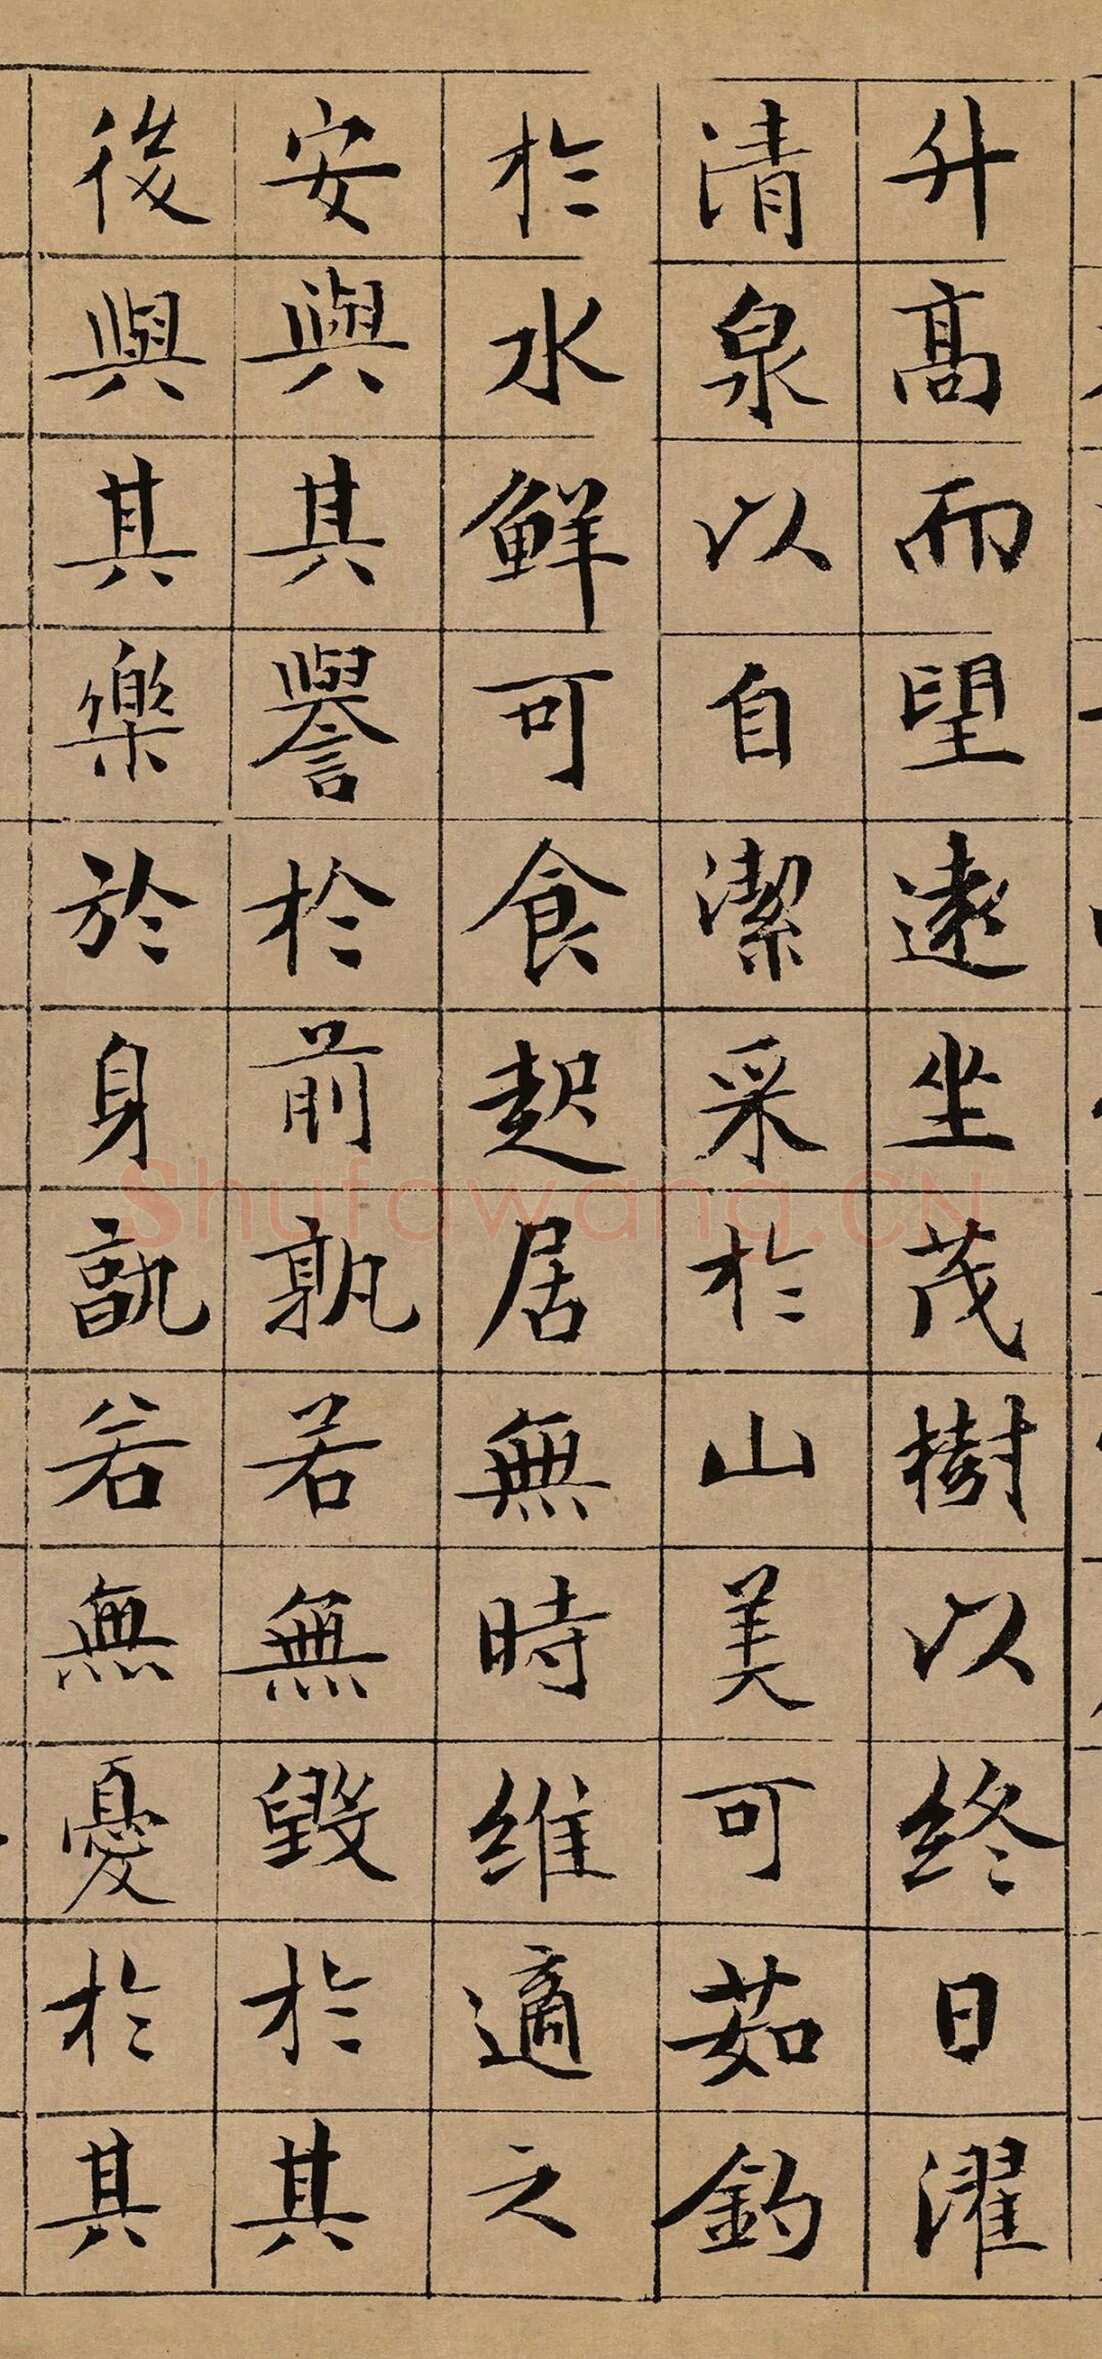 升高而望遠坐茂樹以終日濯
清泉以自潔采於山美可茹釣
於水鮮可食起居無時維適之
安與其譽於前孰若無毀於其
後與其樂於身孰若無憂於其
Shufawang.CN